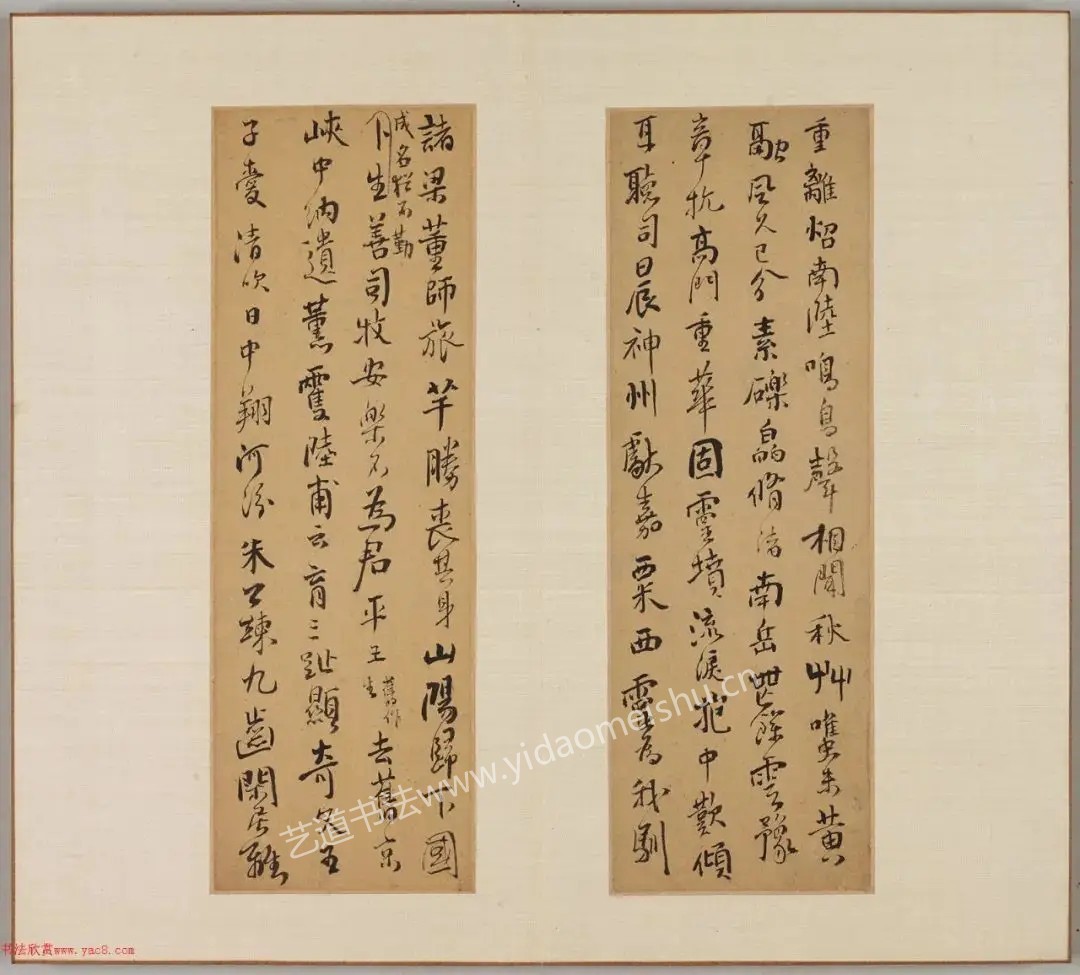 重離炤南陸鳴鳥聲相聞秋艸雖未黃
融風久已分素礫皛脩渚南岳無餘雲豫
章抗高門重華固靈墳流淚抱中歎傾
耳聽司晨神州獻嘉粟西靈為我馴
諸梁董師旅芊勝喪其身山陽歸下國
成名猶不勤
卜生善司牧安樂不為君平王舊作生去舊京
峽中納遺薰雙陸甫云育三趾顯奇文王
子愛清吹日中翔河汾朱公練九齒閑居離
艺道书法www.yidaomeishu.cn
书法欣赏www.yac8.com